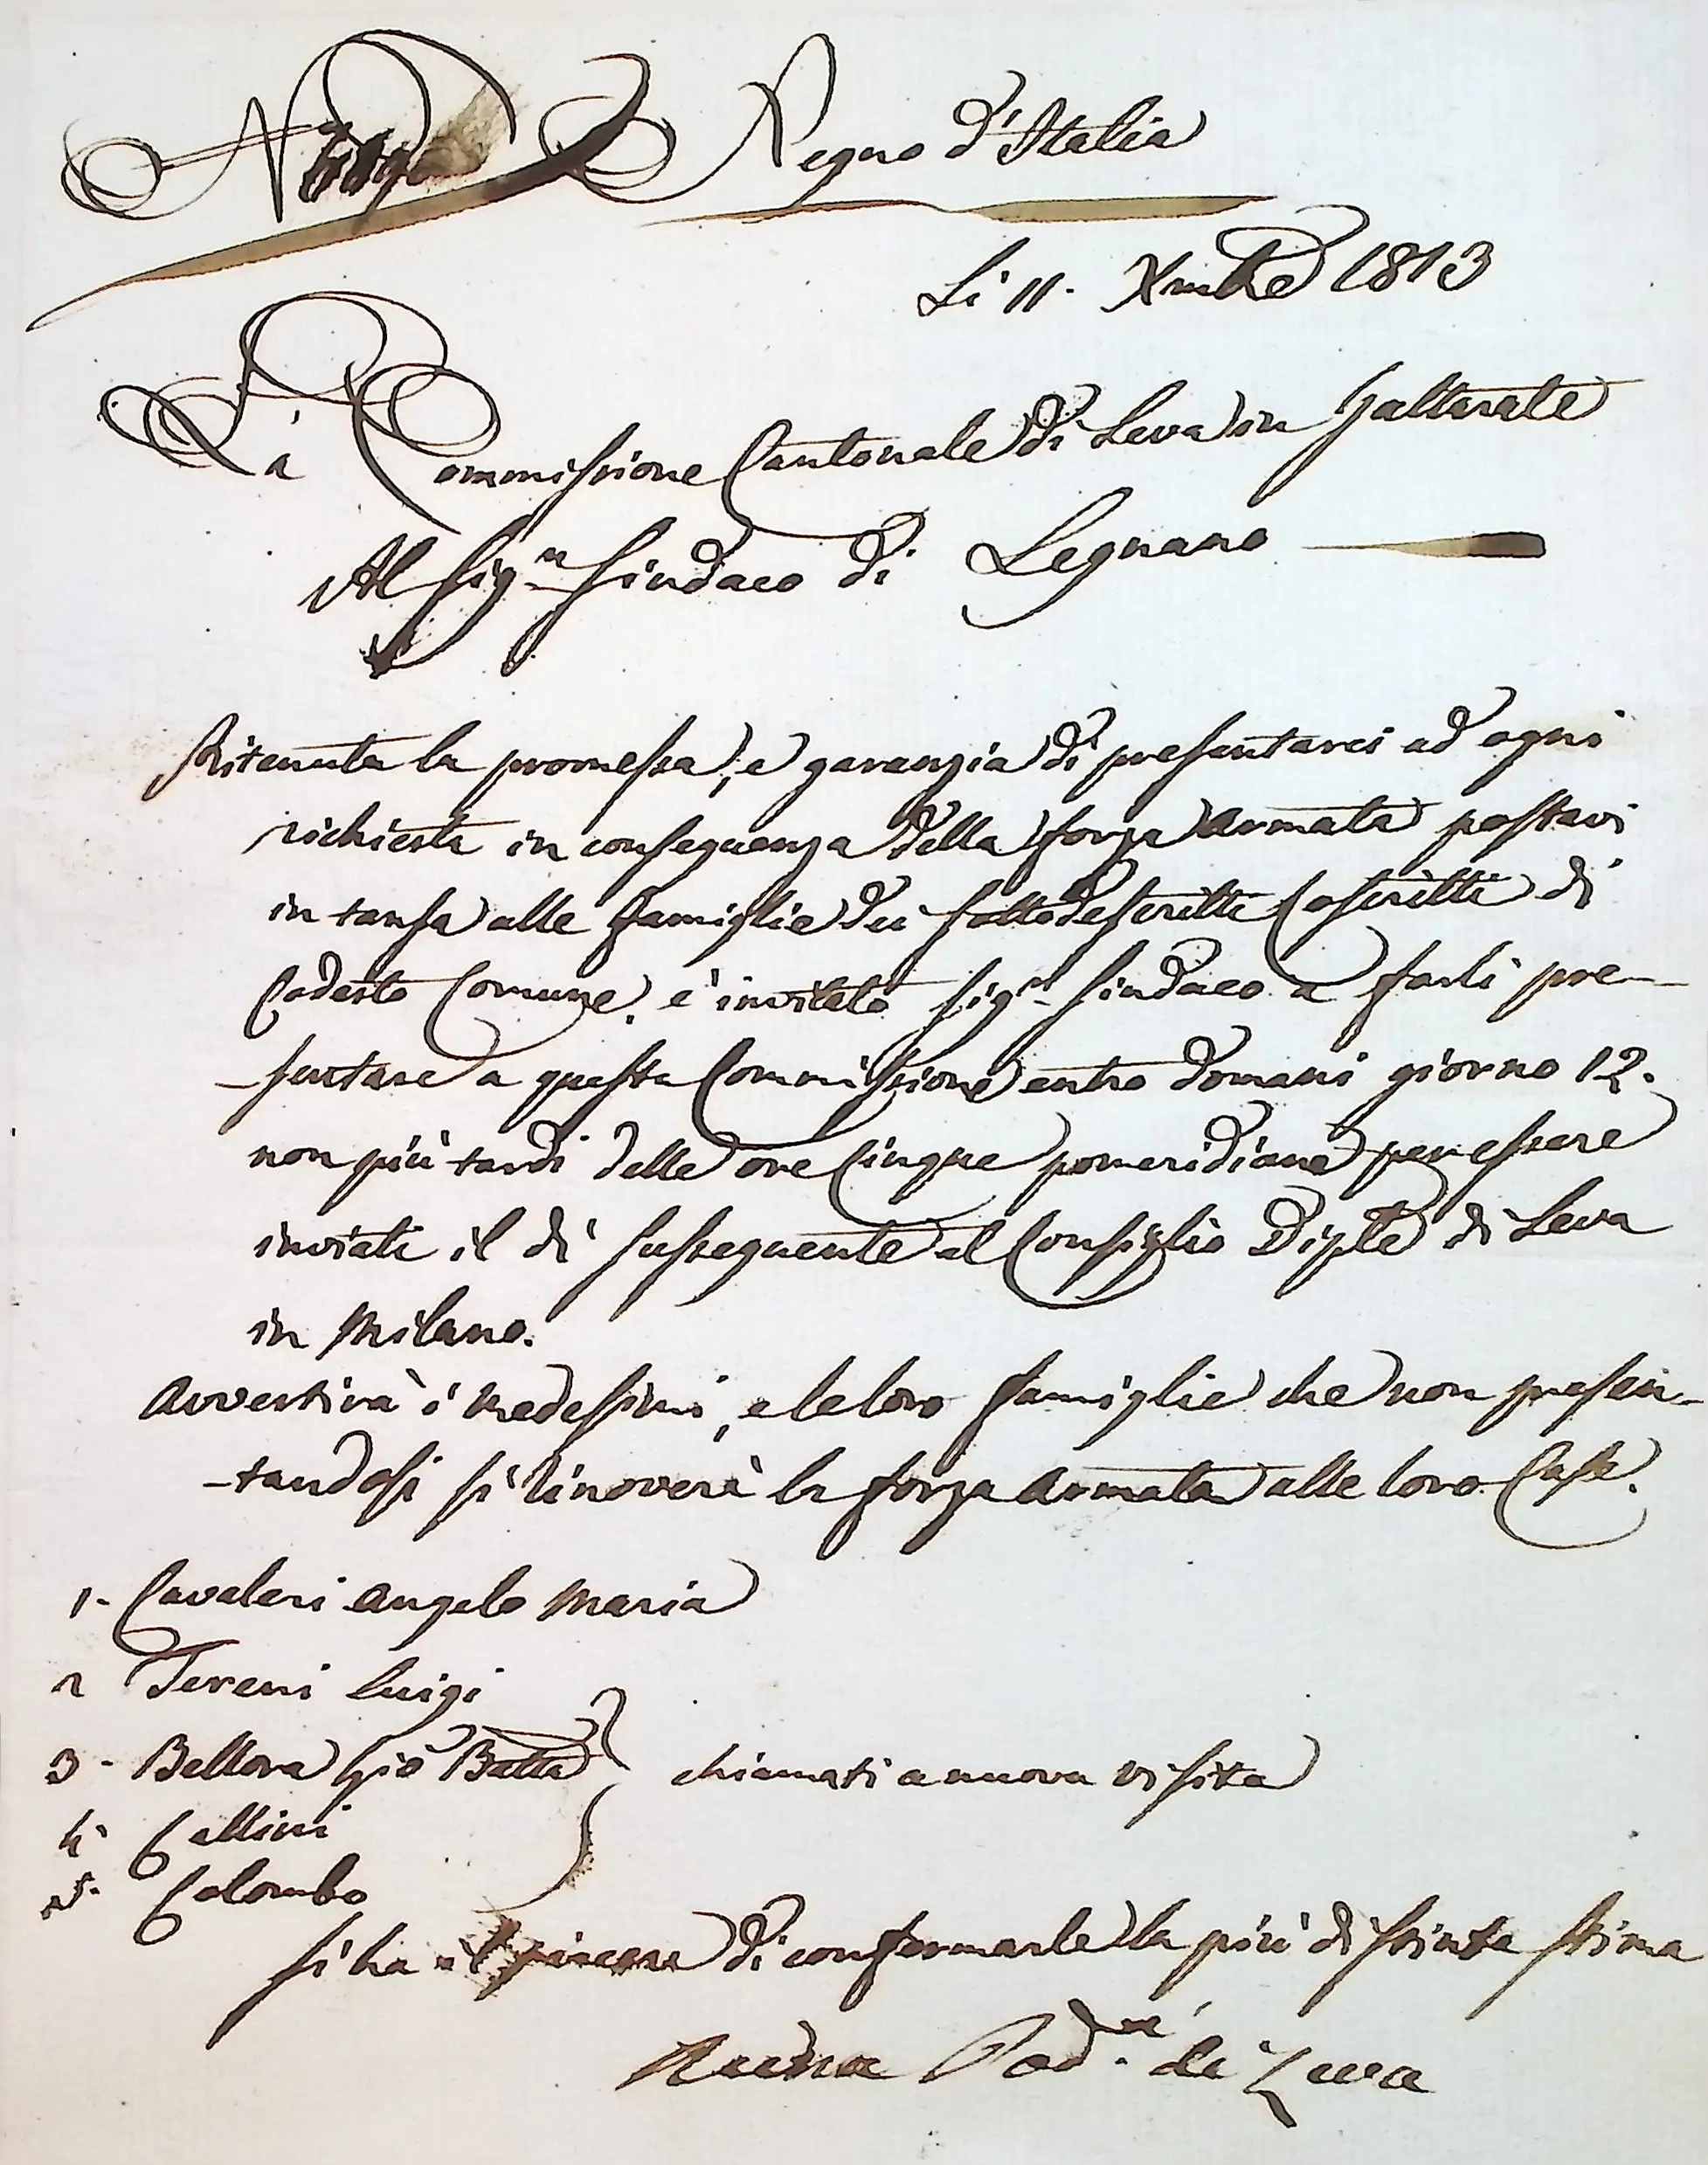 N Regno d'Italia
Li 11. Xmbre 1813
La Commissione Cantonale di Leva in Gallarate
Al Sig.r Sindaco di Legnano
Ritenuta la promessa, e garanzia di presentarci ad ogni
richiesta in conseguenza della forza armata postavi
in tansa alle famiglie dei sottodescritti Coscritti di
Codesto Comune. è invitato Sig.r Sindaco a farli pre-
-sentare a questa Commissione entro domani giorno 12.
non più tardi delle ore Cinque pomeridiane per essere
inviati il dì susseguente al Consiglio Diple di Leva
in Milano.
Avvertirà i medesimi, e le loro famiglie che non presen-
-tandosi si rinoverà la forza armata alle loro Case.
1- Cavaleri Angelo Maria
2 Tereni Luigi
3- Bellora Gio Batta chiamati a nuova visita
4- Collini
5. Colombo
Si ha il piacere di confermarle la più distinta stima
Pod.à di Leva